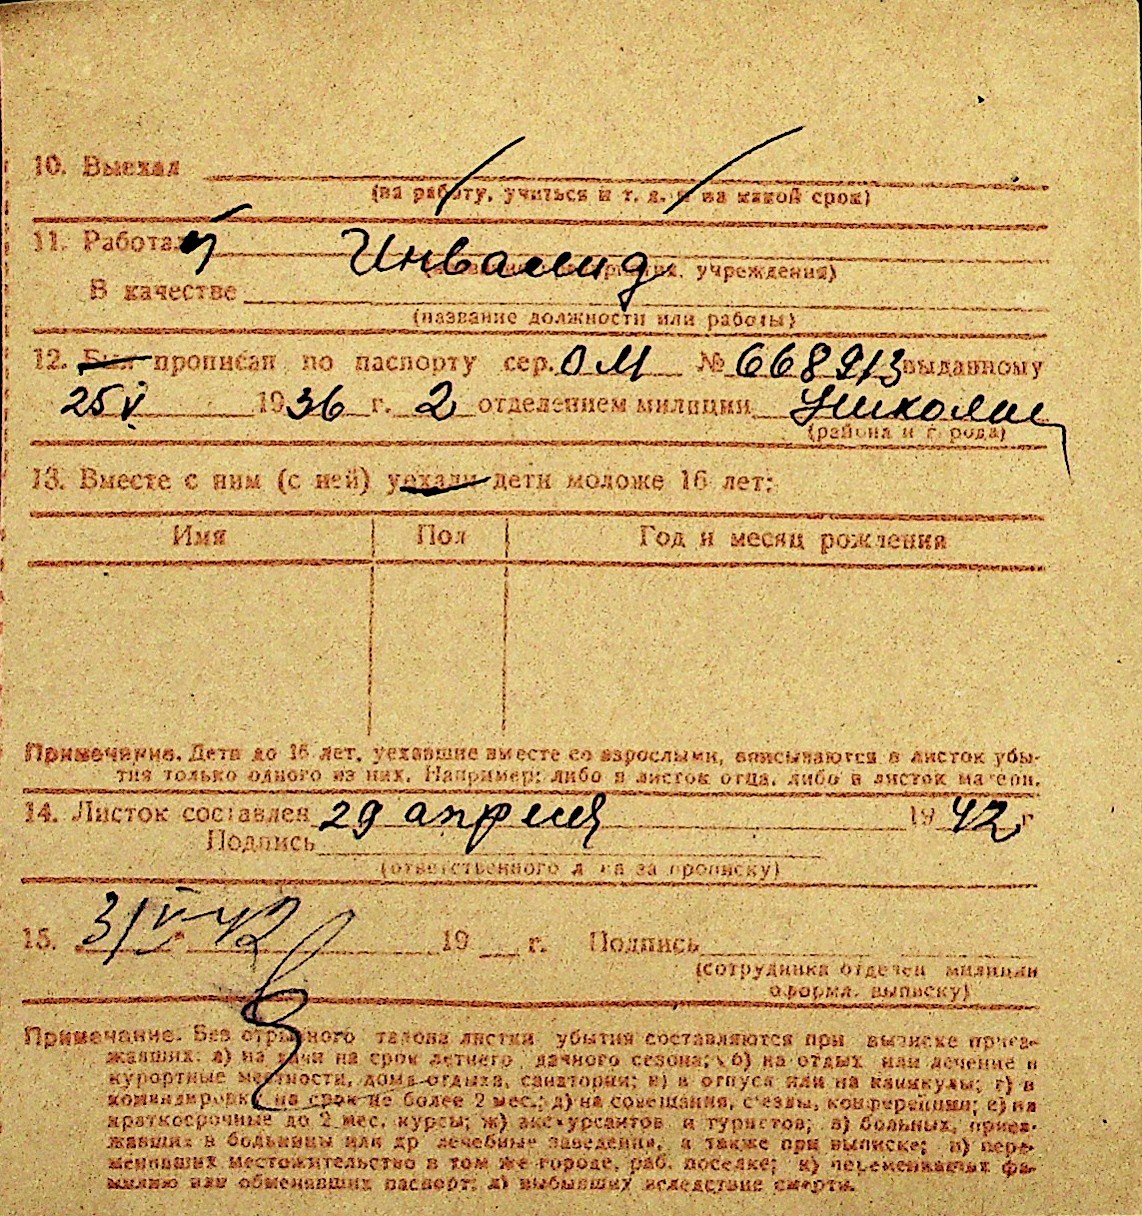 10. Выехал
(на работу, учиться и т. д. и на какой срок)
11. Работал Инвалид
учреждения)
В качестве
(название должности или работы)
12. Был прописан по паспорту сер. ОМ № 668913 выданному
25 V 1936 г. 2 отделением милиции
(района и города)
13. Вместе с ним (с ней) уехали дети моложе 16 лет:
Имя Пол Год и месяц рождения
Примечание. Дети до 16 лет, уехавшие вместе со взрослыми, вписываются в листок убы-
тия только одного из них. Например: либо в листок отца, либо в листок матери.
14. Листок составлен 29 апреля 1942 г
Подпись
(ответственного л на за прописку)
15. 3/V-42 19 г. Подпись
(сотрудника отделен милиции
оформл. выписку)
Примечание. Без отрывного талона листки убытия составляются при выписке приез-
жавших: а) на дачи на срок летнего дачного сезона; б) на отдых или лечение в
курортные местности, дома отдыха, санатории; в) в отпуск или на каникулы; г) в
командировку на срок не более 2 мес.; д) на совещания, съезды, конференции; е) на
краткосрочные до 2 мес. курсы; ж) экскурсантов и туристов; з) больных, приез-
жавших в больницы или др лечебные заведения, а также при выписке; и) пере-
менивших местожительство в том же городе, раб. поселке; к) переменивших фа-
милию или обменявших паспорт; л) выбывших вследствие смерти.